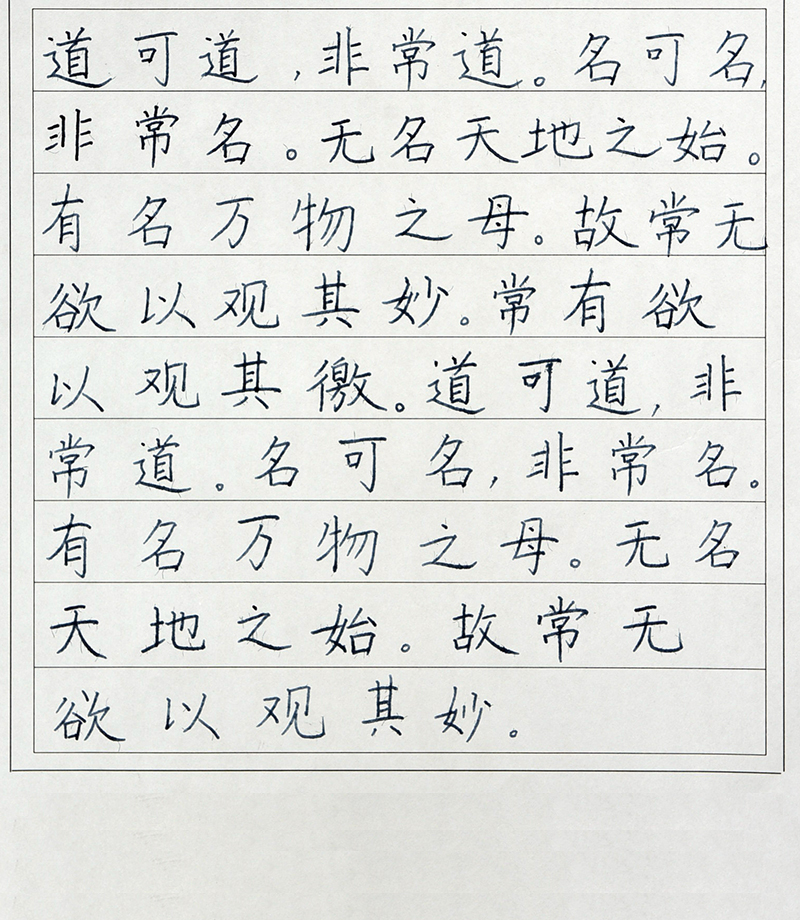 道可道，非常道。名可名，
非常名。无名天地之始。
有名万物之母。故常无
欲以观其妙。常有欲
以观其徼。道可道，非
常道。名可名，非常名。
有名万物之母。无名
天地之始。故常无
欲以观其妙。